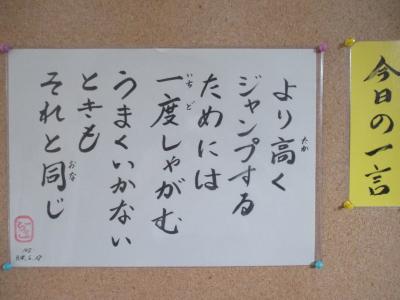 今日の一言
より高く
ジャンプする
ためには
一度しゃがむ
うまくいかない
ときも
それと同じ